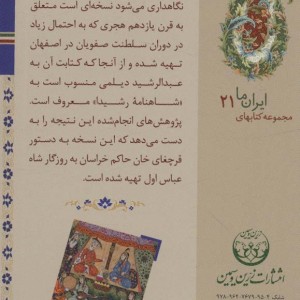 نگاهداری می‌شود نسخه‌ای است متعلق
به قرن یازدهم هجری که به احتمال زیاد
در دوران سلطنت صفویان در اصفهان
تهیه شده و از آنجا که کتابت آن به
عبدالرشید دیلمی منسوب است به
«شاهنامهٔ رشیدا» معروف است.
پژوهش‌های انجام‌شده این نتیجه را به
دست می‌دهد که این نسخه به دستور
قرچغای خان حاکم خراسان به روزگار شاه
عباس اول تهیه شده است.
ایران ما ۲۱
مجموعه کتابهای
انتشارات زرین و سیمین